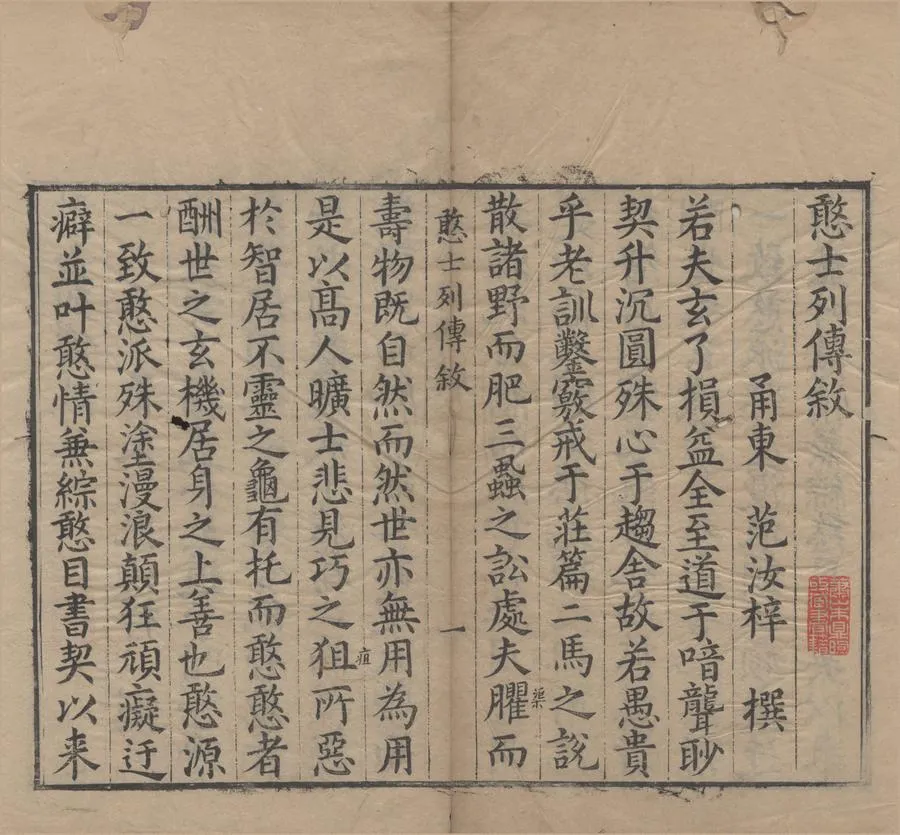 憨士列傳敘
甬東 范汝梓 撰
若夫玄了損益全至道于喑聾眇
契升沉圓殊心于趨舍故若愚貴
乎老訓鑿竅戒于莊篇二馬之說
散諸野而肥三蝨之訟處夫臞而
渠
憨士列傳敘
一
壽物既自然而然世亦無用為用
是以高人曠士悲見巧之狙所惡
疽
於智居不靈之龜有托而憨憨者
酬世之玄機居身之上善也憨源
一致憨派殊塗漫浪顛狂頑癡迂
癖並叶憨情兼綜憨目書契以来